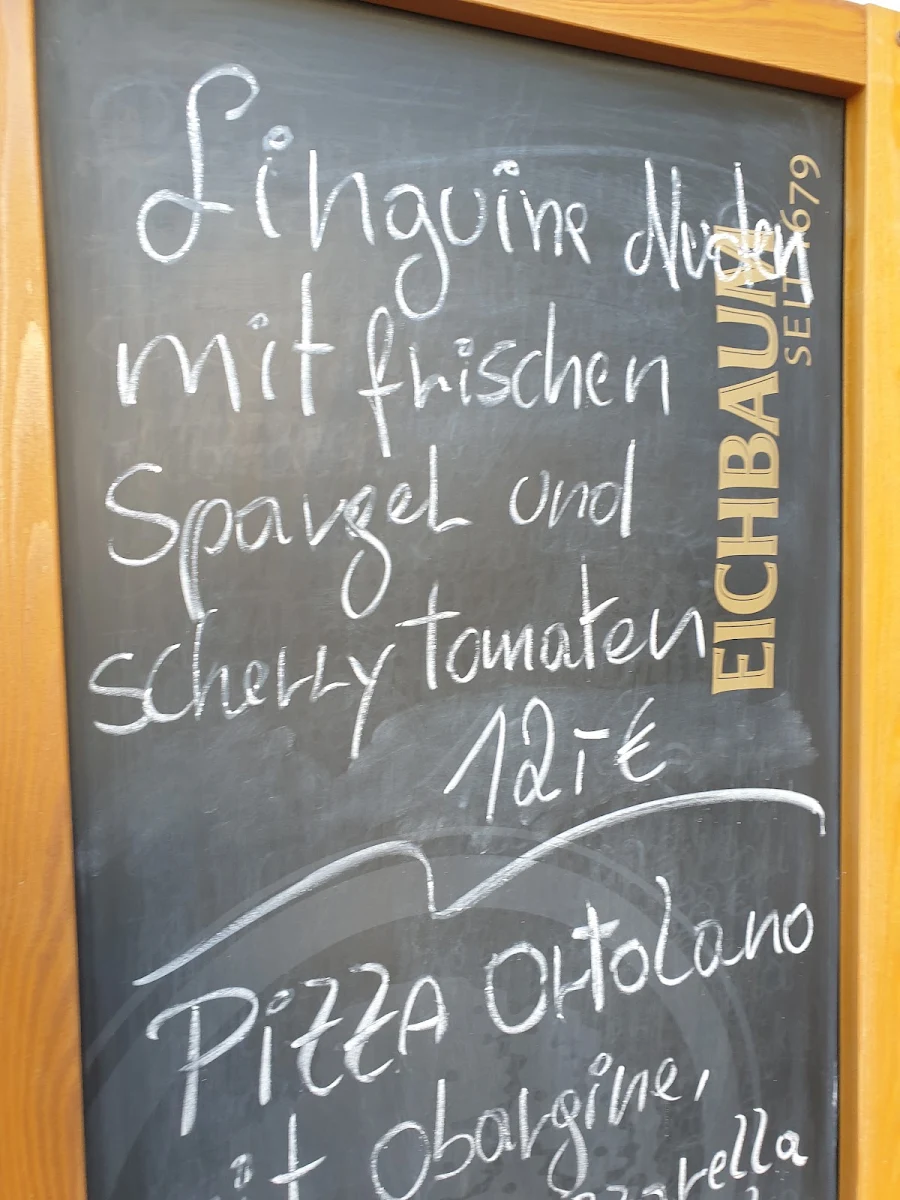 Linguine Nudeln
mit frischen
Spargel und
scherry tomaten
12,-€
Pizza Ortolano
mit Obargine,
EICHBAUM
SEIT 1679